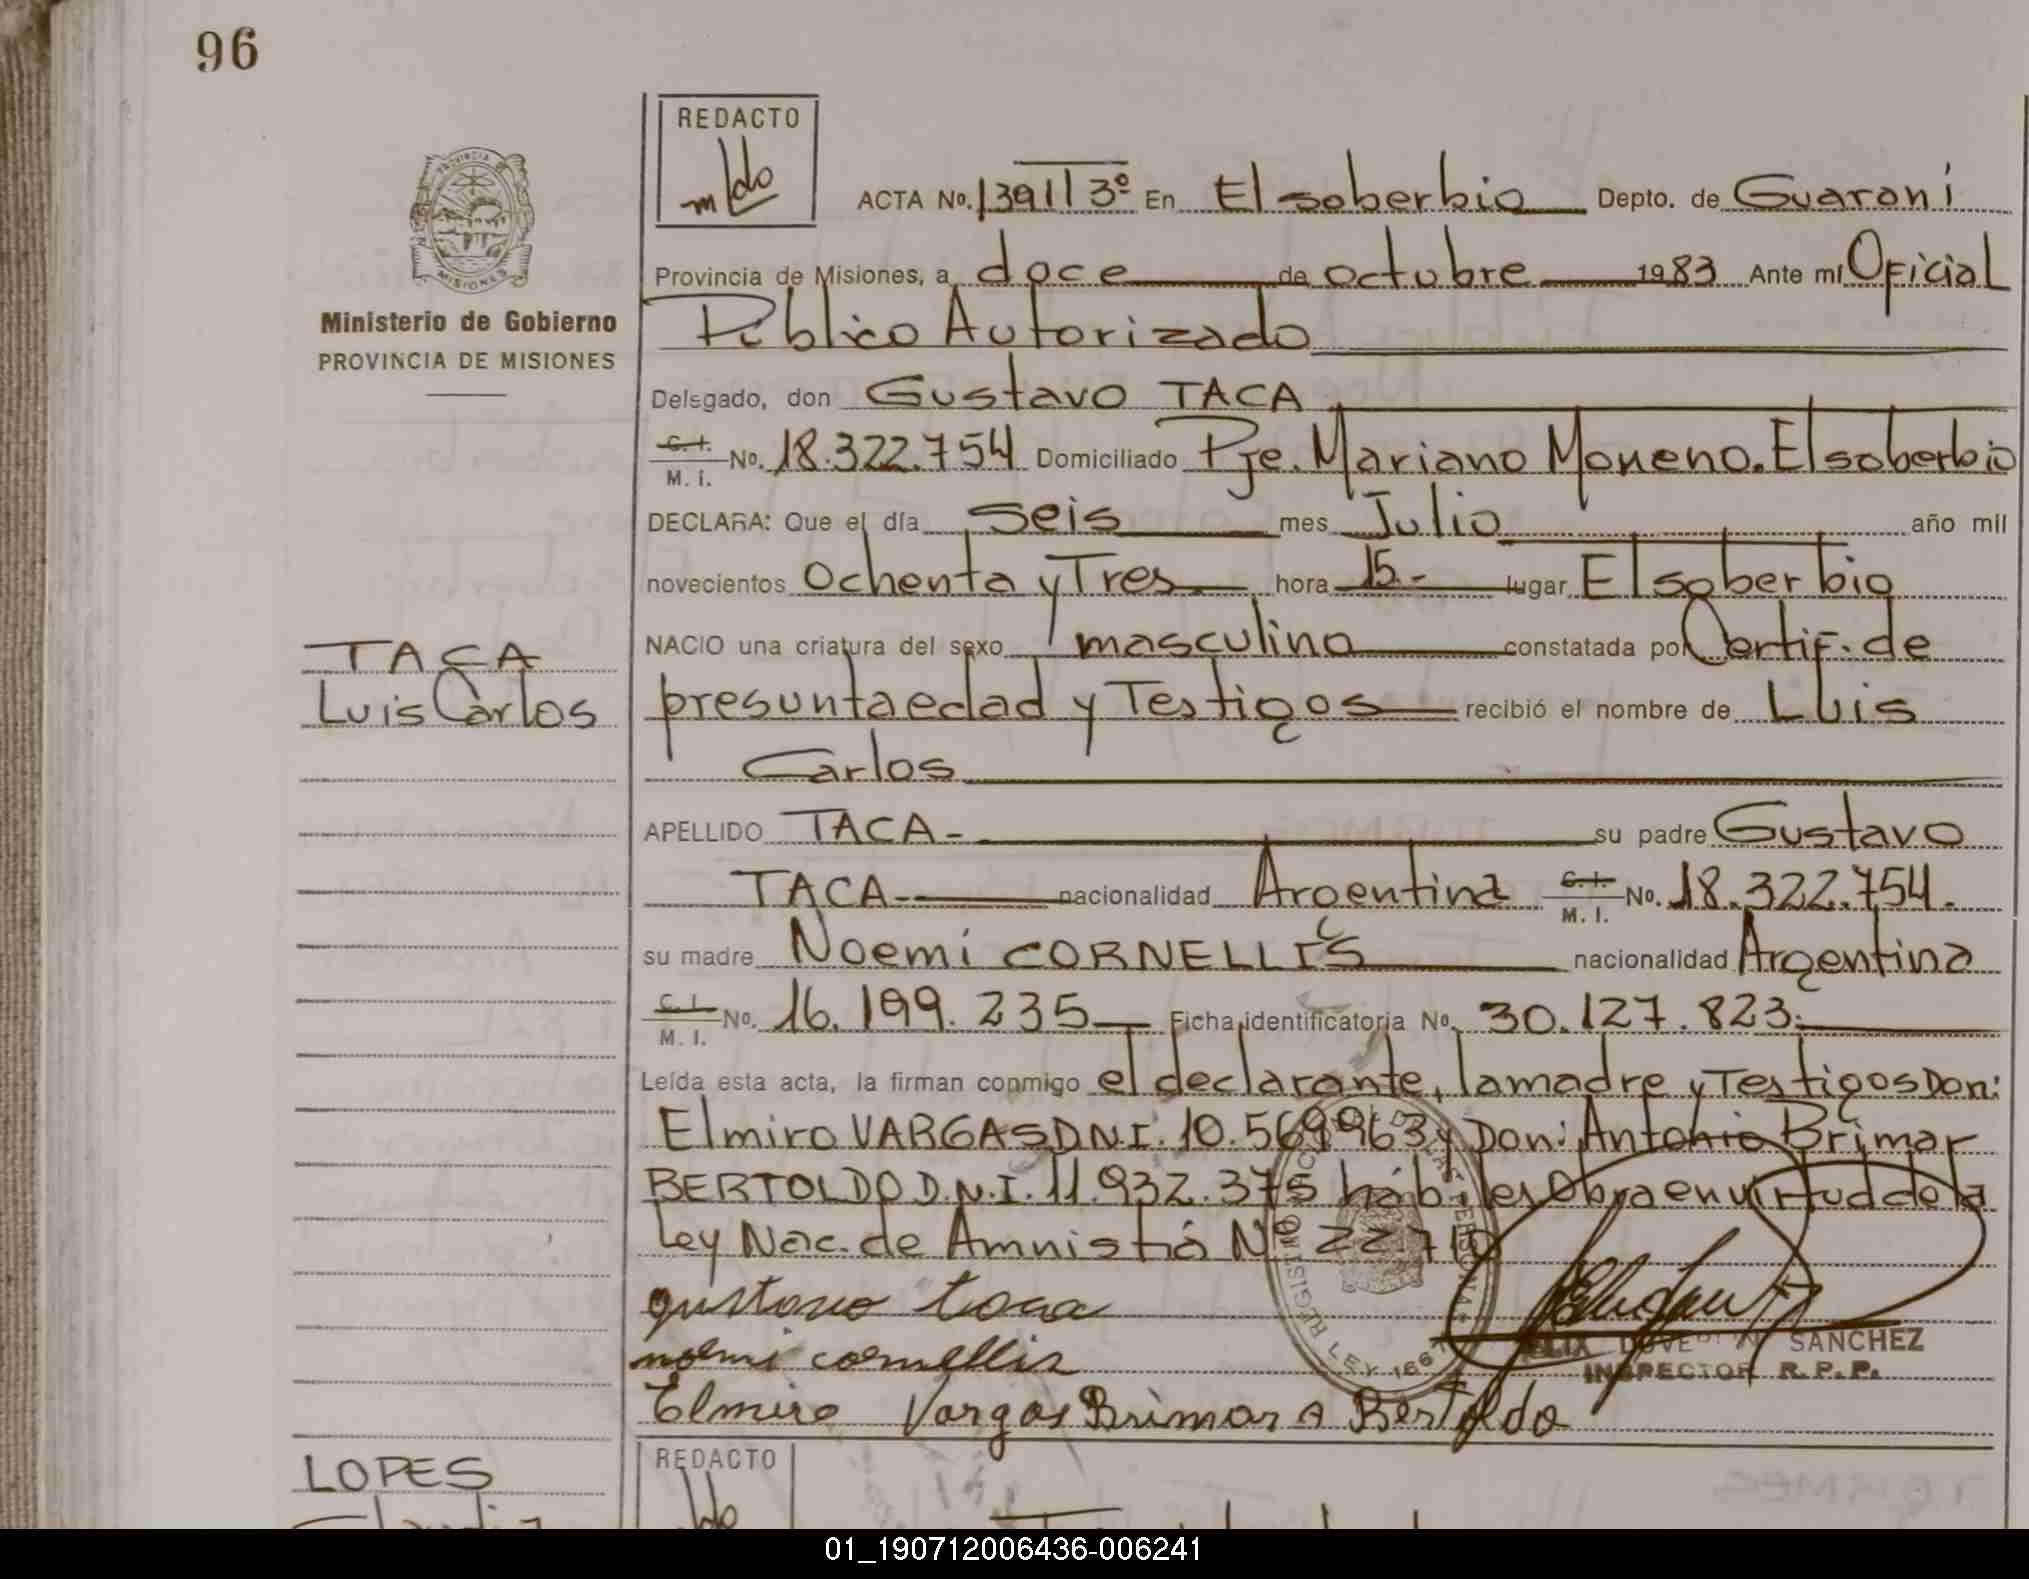 96
REDACTO
ACTA No. 1391 13º En El soberbio Depto. de Guarani
Provincia de Misiones, a doce de octubre 1983 Ante mí Oficial
Ministerio de Gobierno
PROVINCIA DE MISIONES
Público Autorizado
Delegado, don Gustavo TACA
C. I. M. I. No. 18.322.754 Domiciliado Pje. Mariano Moreno. El soberbio
DECLARA: Que el día seis mes Julio año mil
novecientos Ochenta y Tres hora 15.- lugar El soberbio
TACA
Luis Carlos
NACIO una criatura del sexo masculino constatada por Certif. de
presunta edad y Testigos recibió el nombre de Luis
Carlos
APELLIDO TACA- su padre Gustavo
TACA- nacionalidad Argentina C. I. M. I. No. 18.322.754.
su madre Noemi CORNELLIS nacionalidad Argentina
C. I. M. I. No. 16.199.235 Ficha identificatoria No. 30.127.823.
Leída esta acta, la firman conmigo el declarante, la madre y Testigos Don:
Elmiro VARGAS D.N.I. 10.569963 y Don: Antonio Brimar
BERTOLDO D.N.I. 11.932.375 hábiles Obra en virtud de la
Ley Nac. de Amnistiá Nº 22710
gustavo taca
noemi cornellis
SANCHEZ
INSPECTOR R.P.P.
Elmiro Vargas Brimar A Bertoldo
LOPES
REDACTO
01_190712006436-006241